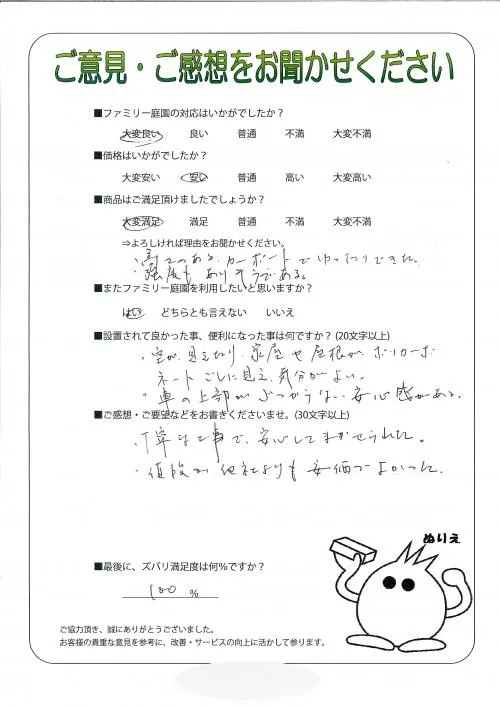 ご意見・ご感想をお聞かせください
■ファミリー庭園の対応はいかがでしたか？
大変良い 良い 普通 不満 大変不満
■価格はいかがでしたか？
大変安い 安い 普通 高い 大変高い
■商品はご満足頂けましたでしょうか？
大変満足 満足 普通 不満 大変不満
⇒よろしければ理由をお聞かせください。
・高さのある、カーポートでゆったりできた。
・強度もありそうである。
■またファミリー庭園を利用したいと思いますか？
はい どちらとも言えない いいえ
■設置されて良かった事、便利になった事は何ですか？(20文字以上)
・空が見えたり、家屋や屋根がポリカーボ
ネートごしに見え、気分がよい。
・車の上部がぶつからない安心感がある。
■ご感想・ご要望などをお書きくださいませ。(30文字以上)
・丁寧な工事で、安心してまかせられた。
・値段が他社よりも安価でよかった。
ぬりえ
■最後に、ズバリ満足度は何％ですか？
100 %
ご協力頂き、誠にありがとうございました。
お客様の貴重な意見を参考に、改善・サービスの向上に活かして参ります。